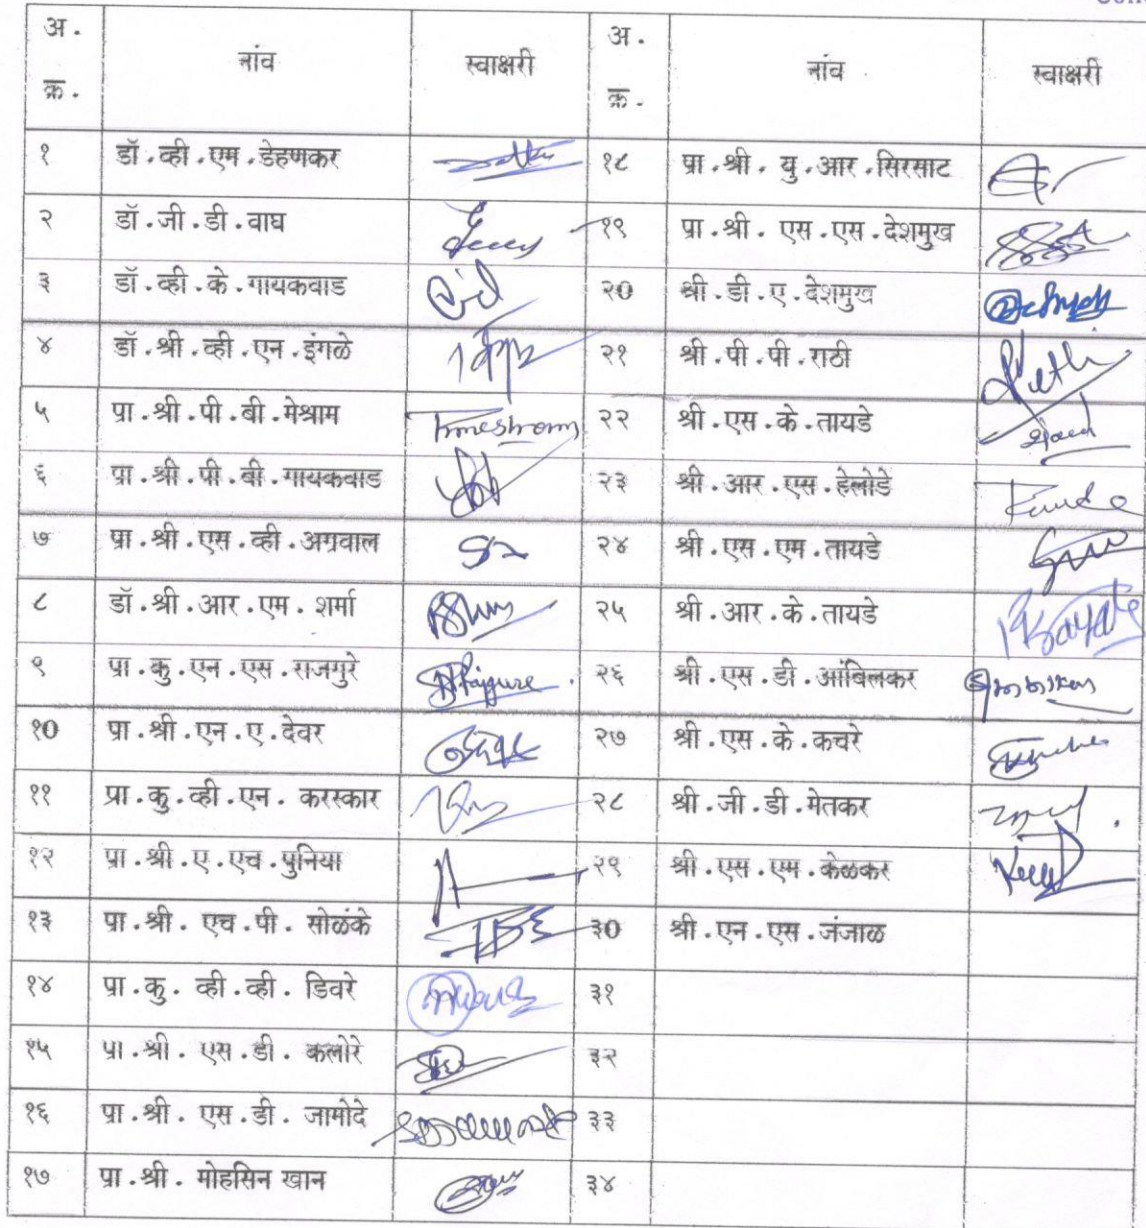 अ. क्र. नांव स्वाक्षरी अ. क्र. नांव स्वाक्षरी
१ डॉ.व्ही.एम.डेहणकर १८ प्रा.श्री. यु.आर.सिरसाट
२ डॉ.जी.डी.वाघ १९ प्रा.श्री. एस.एस.देशमुख
३ डॉ.व्ही.के.गायकवाड २० श्री.डी.ए.देशमुख
४ डॉ.श्री.व्ही.एन.इंगळे २१ श्री.पी.पी.राठी
५ प्रा.श्री.पी.बी.मेश्राम २२ श्री.एस.के.तायडे
६ प्रा.श्री.पी.बी.गायकवाड २३ श्री.आर.एस.हेलोडे
७ प्रा.श्री.एस.व्ही.अग्रवाल २४ श्री.एस.एम.तायडे
८ डॉ.श्री.आर.एम. शर्मा २५ श्री.आर.के.तायडे
९ प्रा.कु.एन.एस.राजगुरे २६ श्री.एस.डी.आंबिलकर
१० प्रा.श्री.एन.ए.देवर २७ श्री.एस.के.कचरे
११ प्रा.कु.व्ही.एन. करस्कार २८ श्री.जी.डी.मेतकर
१२ प्रा.श्री.ए.एच.पुनिया २९ श्री.एस.एम.केळकर
१३ प्रा.श्री. एच.पी. सोळंके ३० श्री.एन.एस.जंजाळ
१४ प्रा.कु. व्ही.व्ही. डिवरे ३१
१५ प्रा.श्री. एस.डी. कलोरे ३२
१६ प्रा.श्री. एस.डी. जामोदे ३३
१७ प्रा.श्री. मोहसिन खान ३४